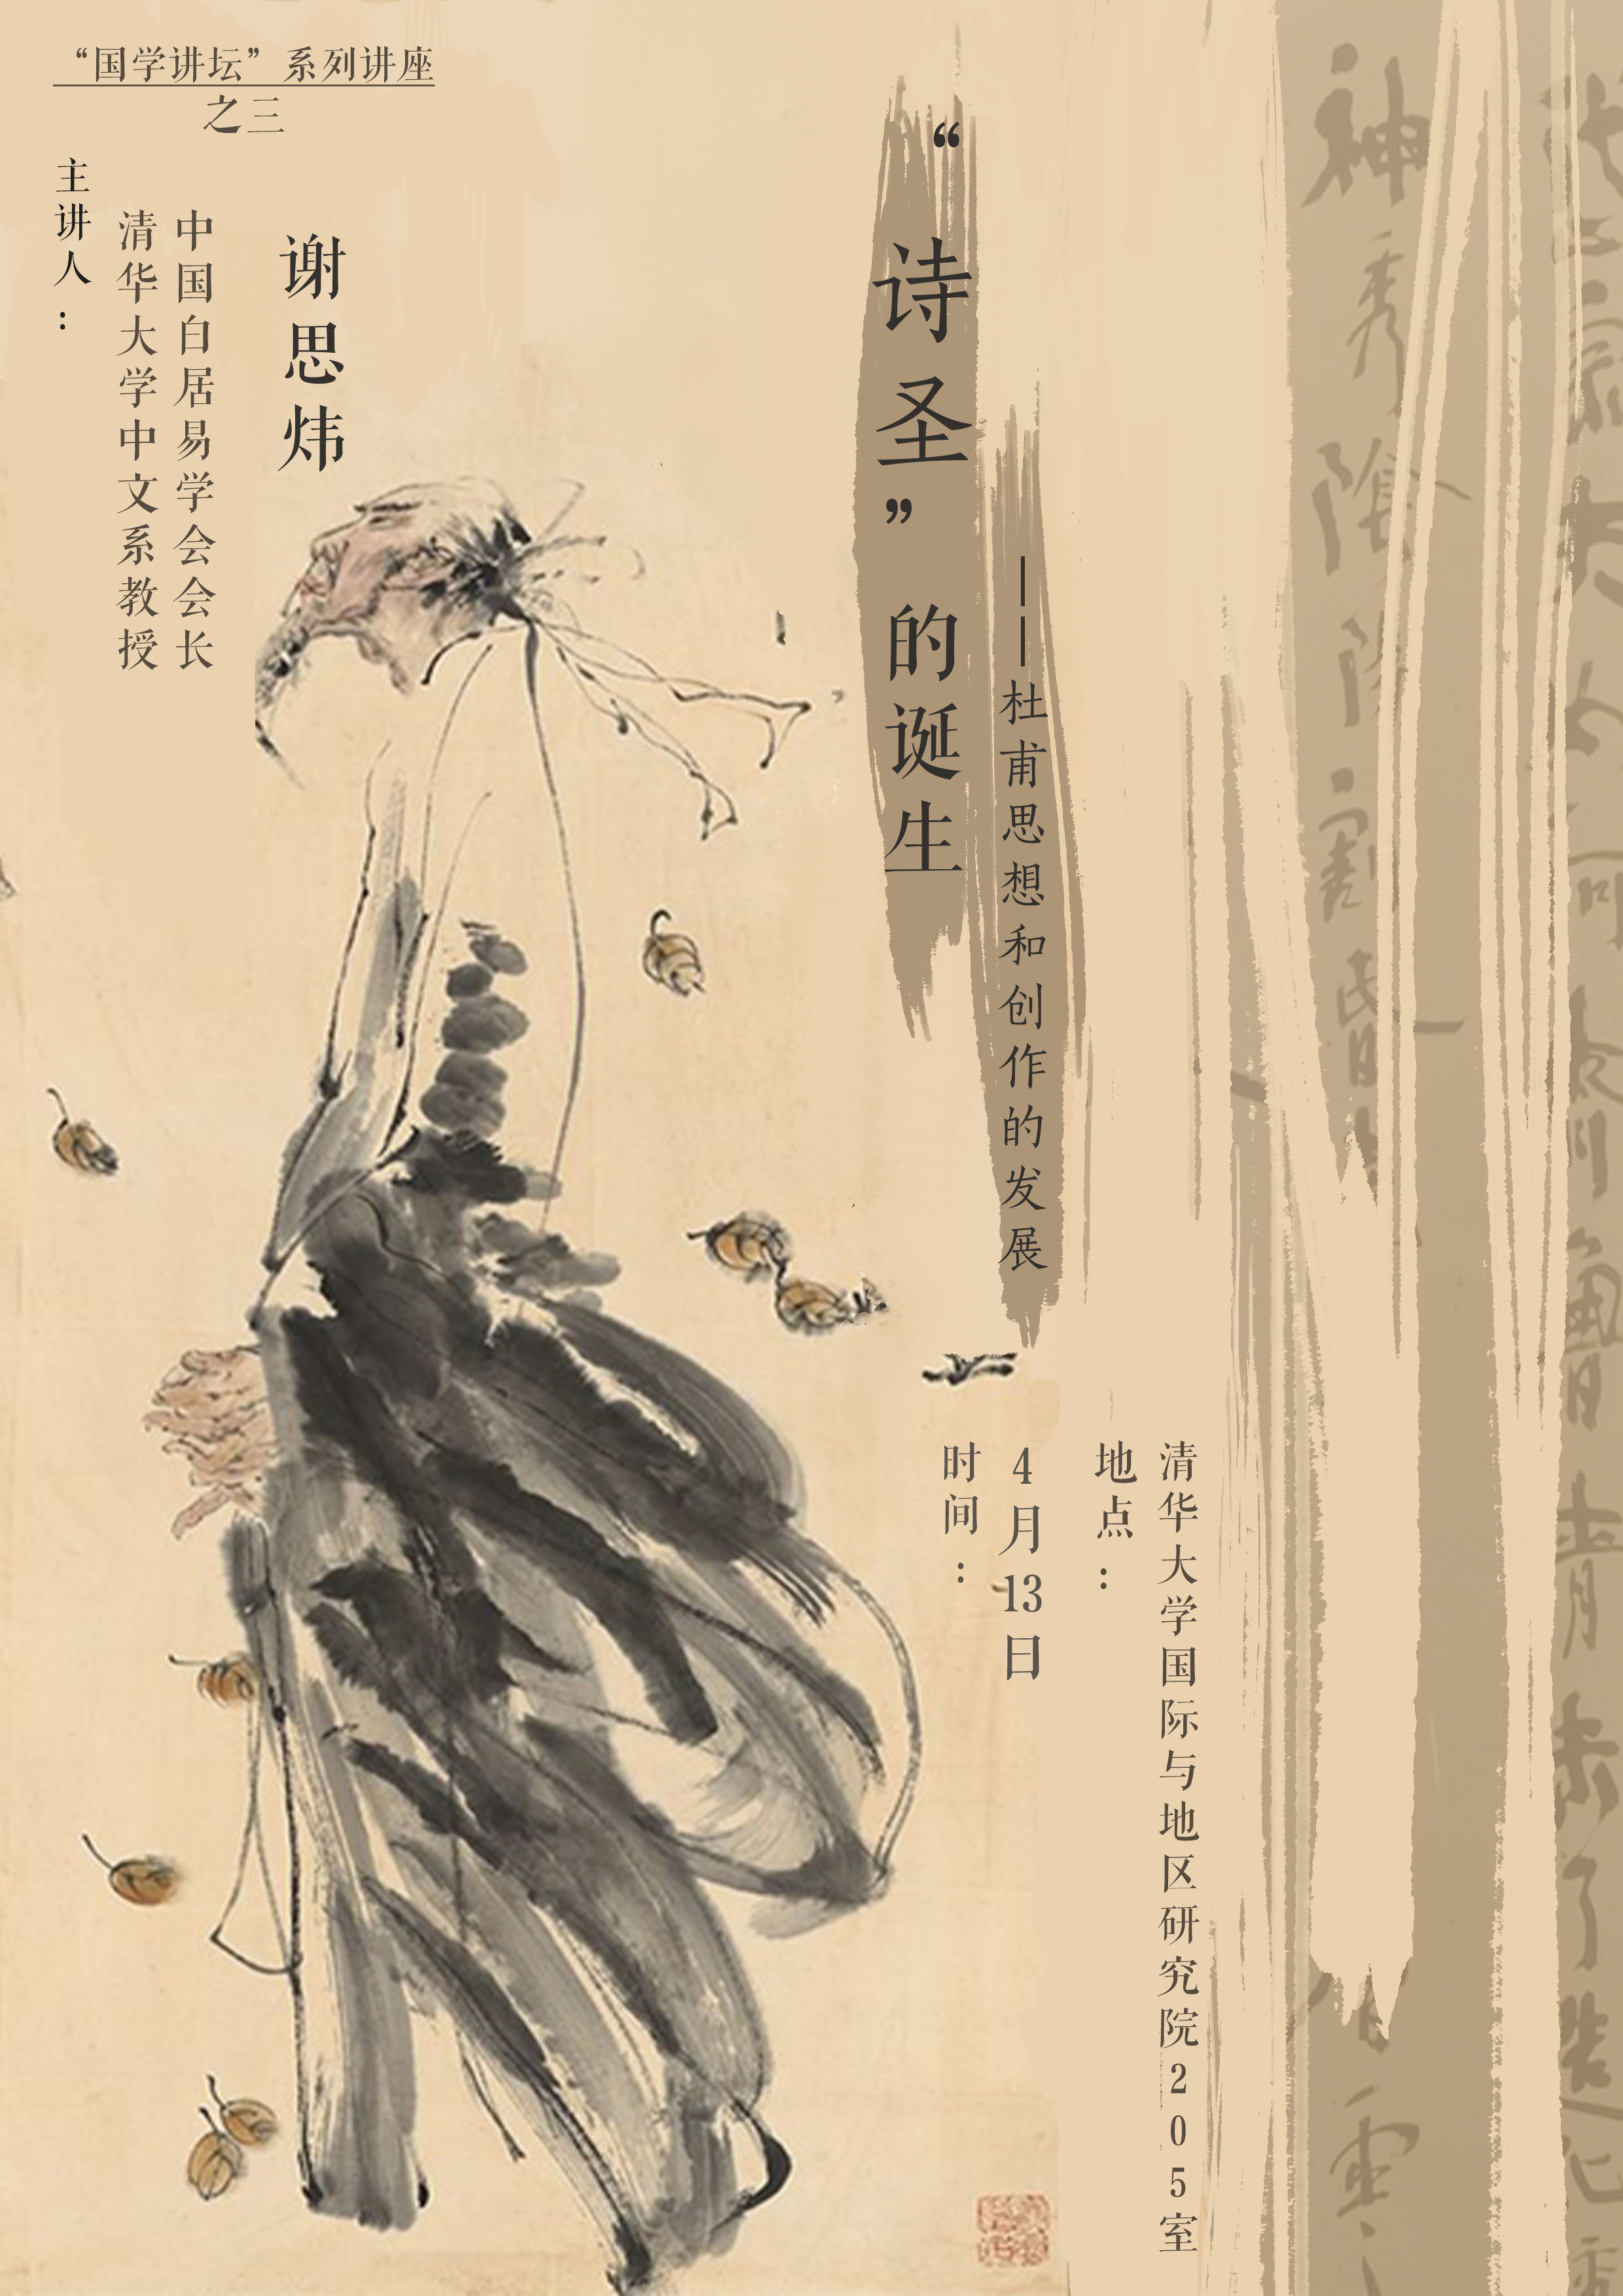 “国学讲坛”系列讲座
之三
主讲人：
清华大学中文系教授
中国白居易学会会长
谢思炜
“诗圣”的诞生
——杜甫思想和创作的发展
时间：
4月13日
地点：
清华大学国际与地区研究院205室
神秀
陰陽割昏